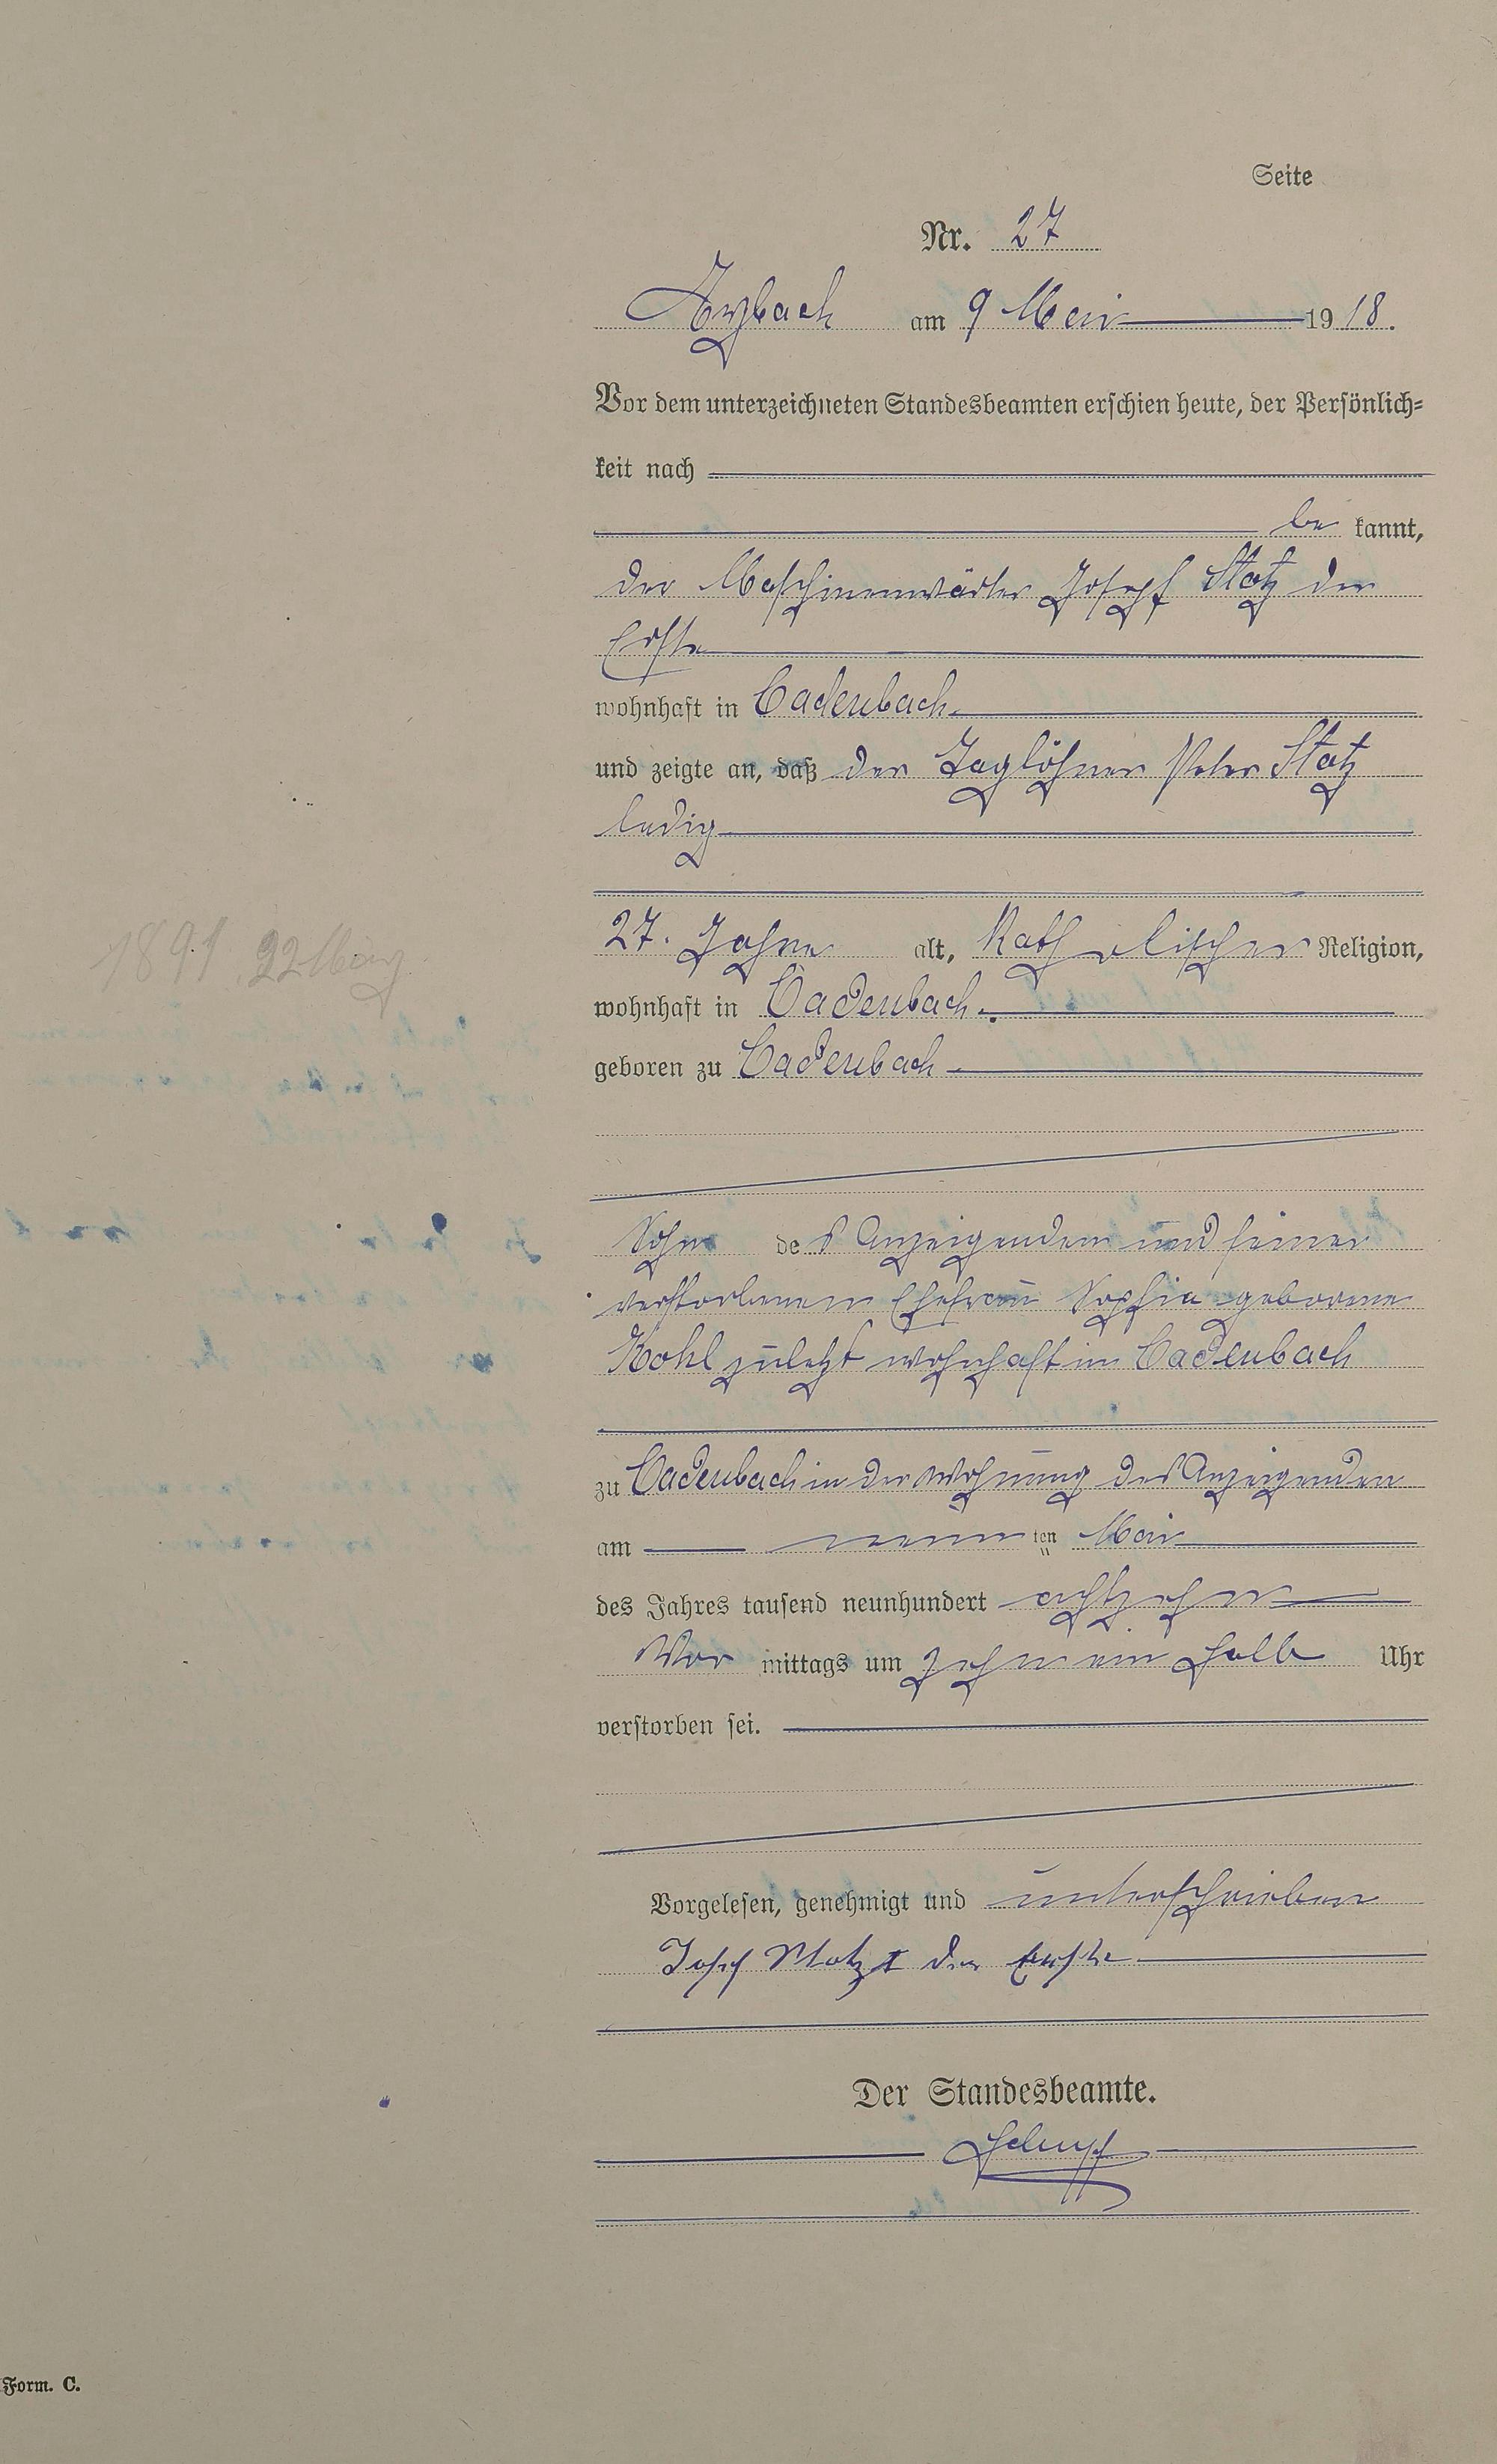 Seite
Nr. 27
Arzbach am 9 Mai 1918.
Vor dem unterzeichneten Standesbeamten erschien heute, der Persönlich-
keit nach
be kannt,
der Maschinenwärter Josef Statz der
Erste
wohnhaft in Cadenbach
und zeigte an, daß der Taglöhner Peter Statz
ledig
1891 22 März
27. Jahre alt, Katholischer Religion,
wohnhaft in Cadenbach.
geboren zu Cadenbach
Sohn des Anzeigenden und seiner
verstorbenen Ehefrau Sophia geborene
Kohl zuletzt wohnhaft in Cadenbach
zu Cadenbach in der Wohnung des Anzeigenden
am neun ten Mai
des Jahres tausend neunhundert achtzehn
Vor mittags um zehn ein halb Uhr
verstorben sei.
Vorgelesen, genehmigt und unterschrieben
Josef Statz I der Erste
Der Standesbeamte.
Form. C.